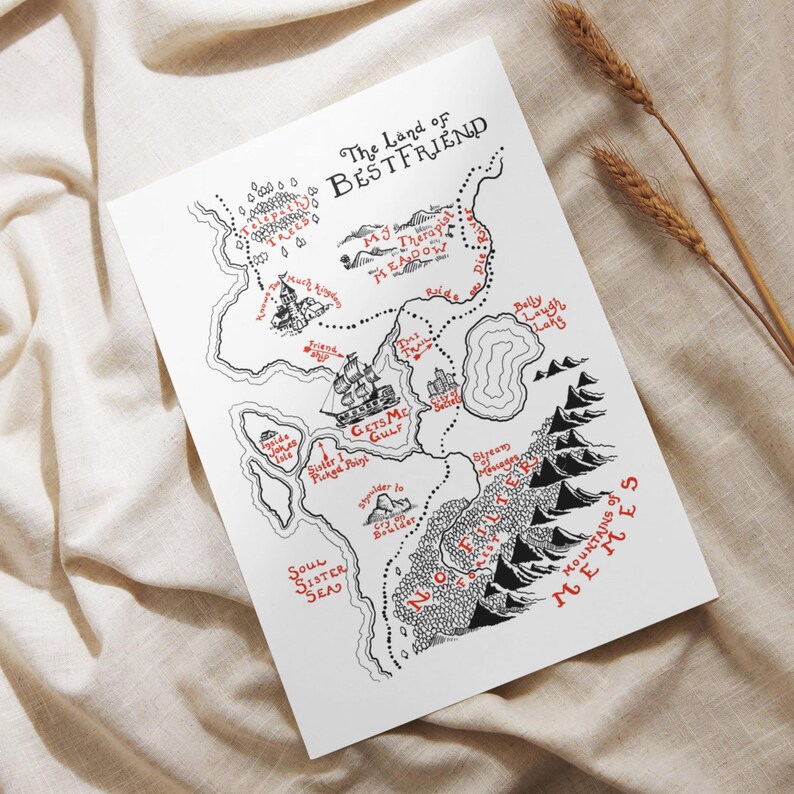 The Land of
BestFriend
Telepathy
Trees
My Therapist
Meadow
Knows Too Much Kingdom
Ride or Die River
Belly
Laugh
Lake
Friend
ship
TMI
Trail
GetsMe
Gulf
City of
Secrets
Inside
Jokes
Isle
Sister I
Picked Point
Stream
of
Messages
Shoulder to
Cry on
Boulder
No Filter
Forest
Mountains of
Memes
Soul
Sister
Sea